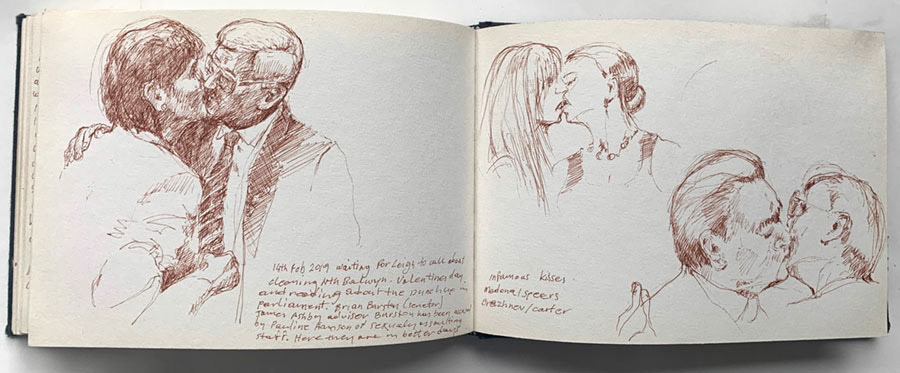 14th Feb 2019 waiting for Leigh to call about
cleaning Nth Balwyn. Valentines day
and reading about the punchup in
parliament. Brian Burston (senator)
James Ashby adviser Burston has been
by Pauline Hanson of sexually assaulting
staff. Here they are in better days
infamous kisses.
Madonna/Speers
Brezhnev/carter